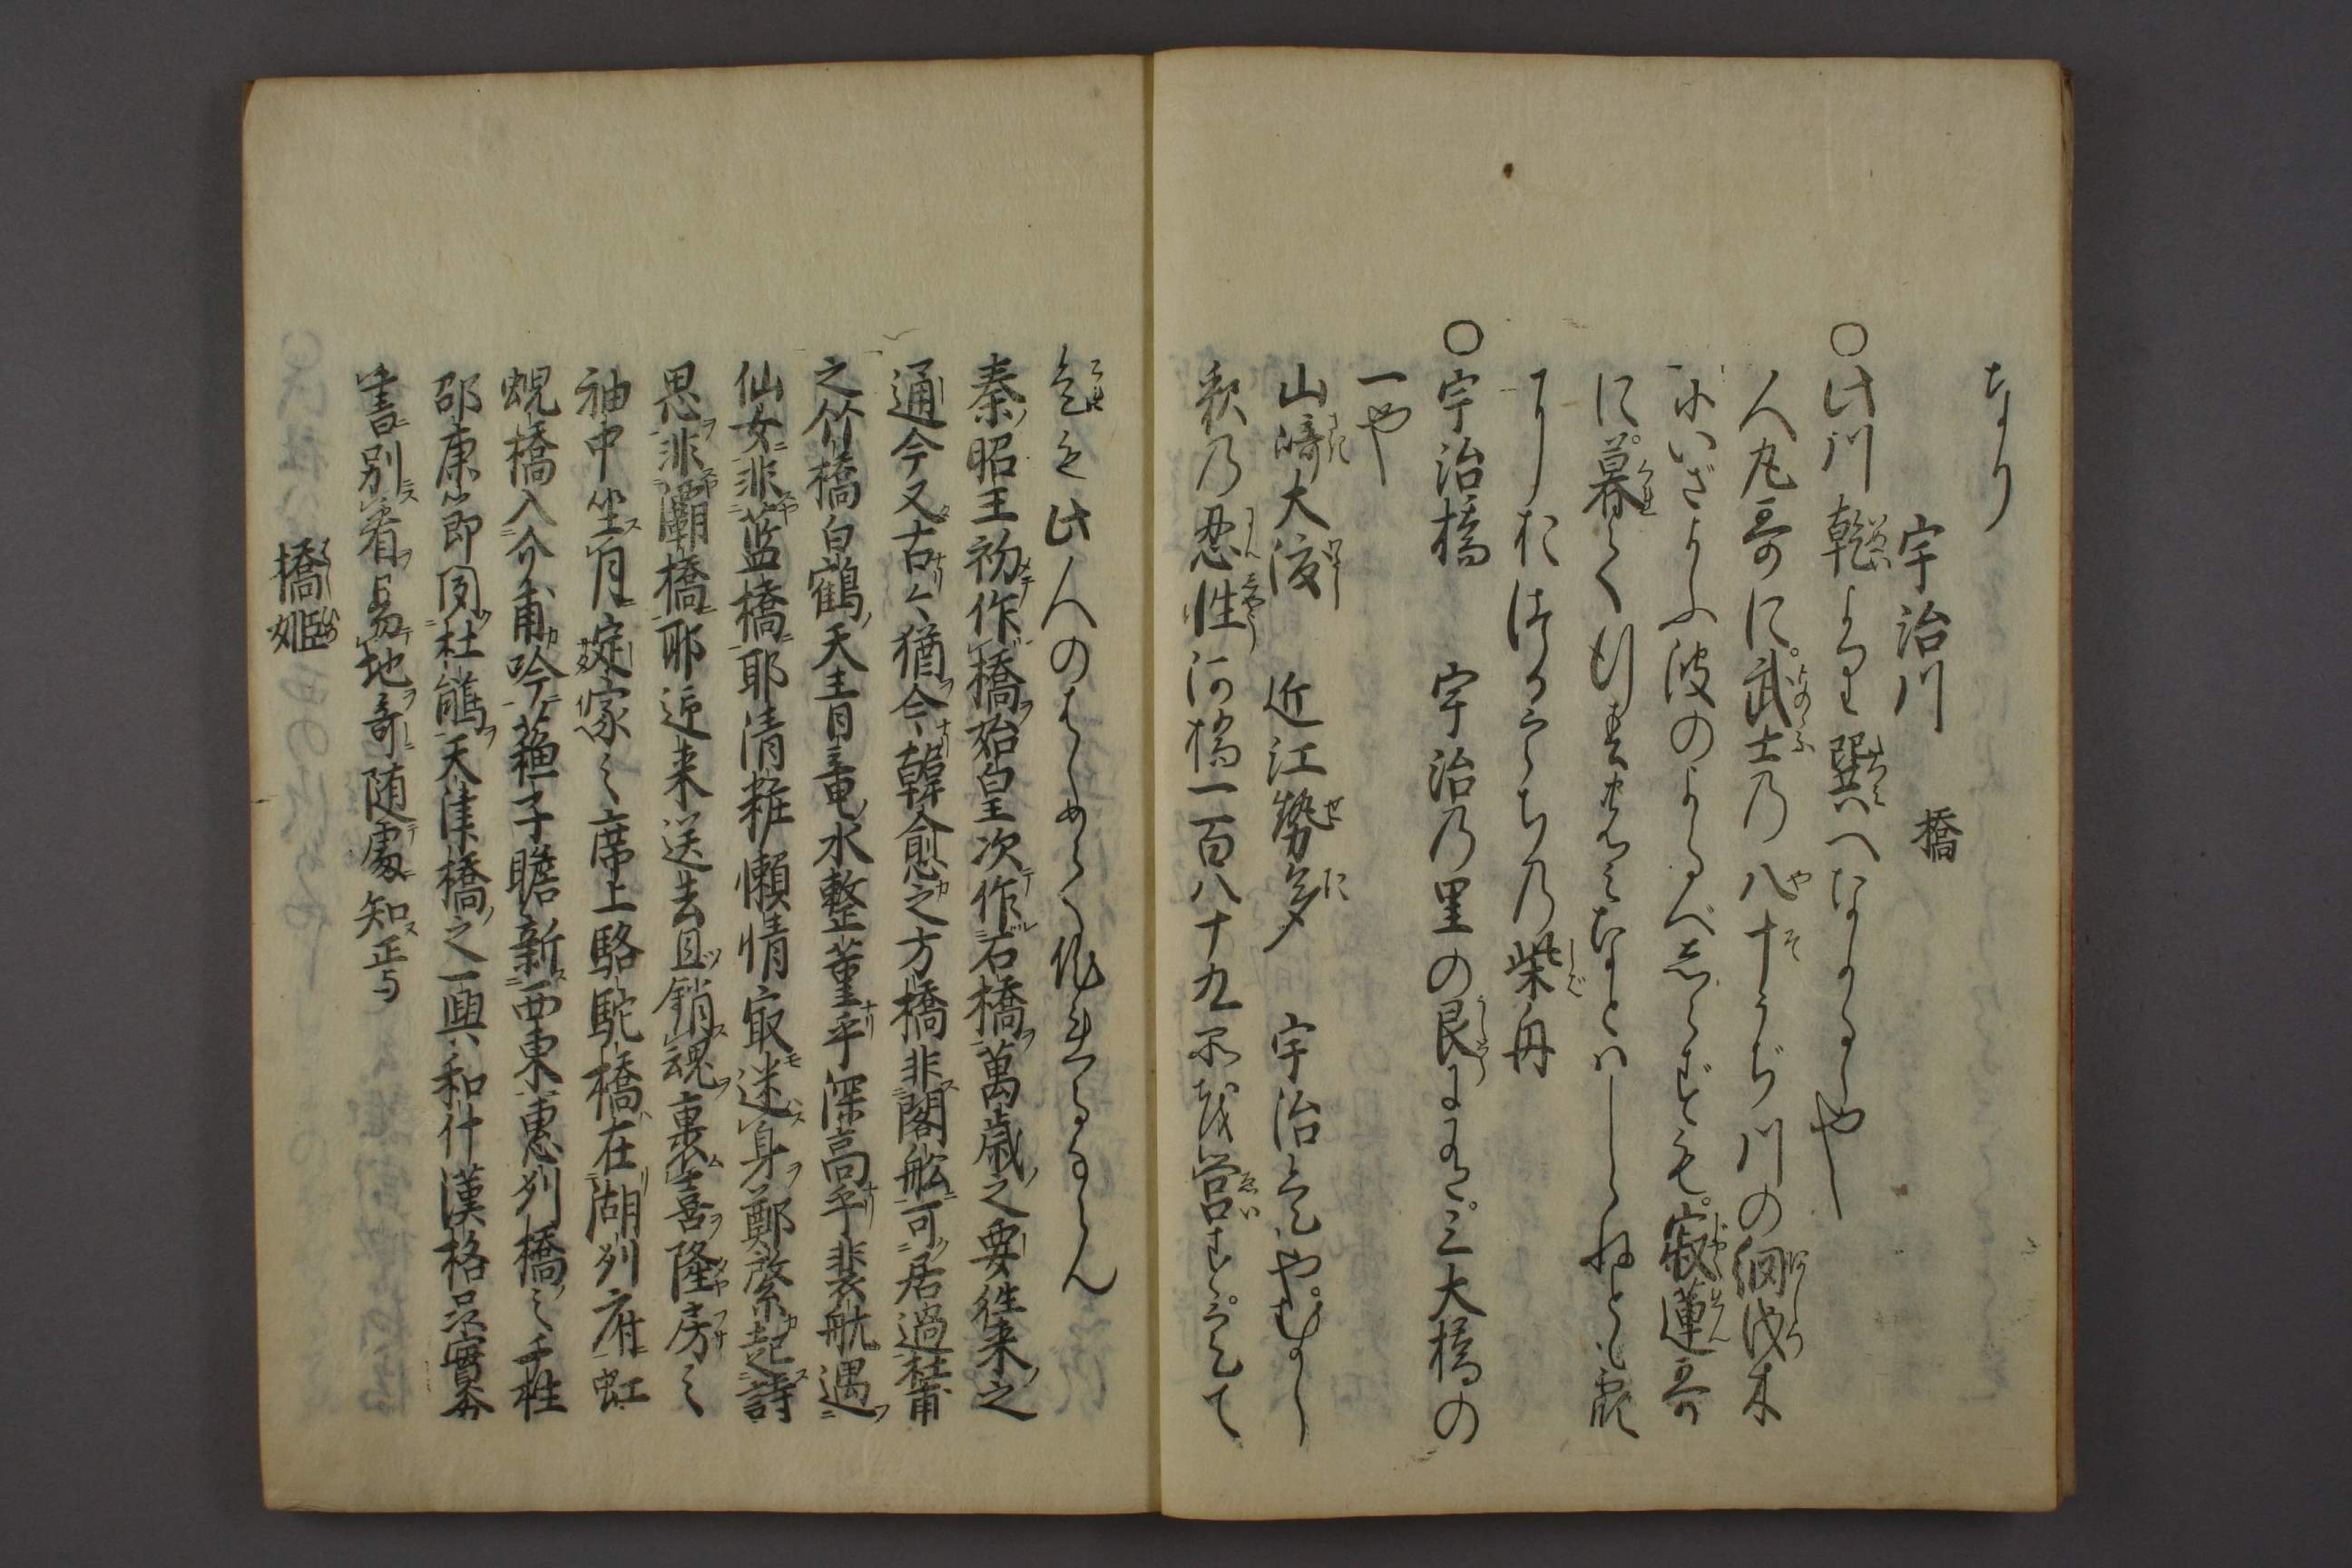 なり
宇治川　橋
○此川乾より巽へながるゝや
人丸哥に武士乃八十うぢ川の網代木
にいざよふ波のよるべしらずも寂蓮哥
に暮て行春のみなとはしらねとも霞
におつるうぢの柴舟
○宇治橋　宇治乃里の艮にあり三大橋の
一や
山﨑大渡　近江勢多　宇治是や むかし
釈乃忍性河橋一百八十九所を営すと云て
此人のはしめて作れるならん
秦昭王初作橋始皇次作石橋萬歳之要徃来之
通今又古々猶今韓愈之方橋非閣舩可居過杜甫
之竹橋白鶴天青黄龍水整董乎深高乎裴航遇
仙女非藍橋耶清粧懶情寂迷身鄭綮起詩
思非灞橋耶迎来送去且銷魂裏喜隆房之
袖中坐月定家之席上駱駝橋在湖州府虹
蜺橋入介甫吟蘓子瞻新西東惠州橋之千柱
邵康節聞杜鵑天津橋之一興和什漢格只實券
書別看易地奇随處知与
橋姫